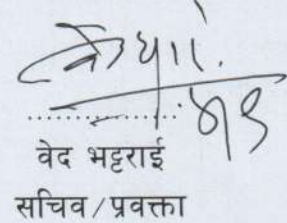 ....................
वेद भट्टराई
सचिव/प्रवक्ता